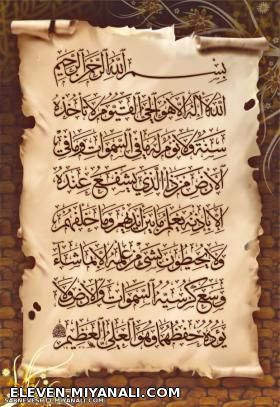 بِسْمِ اللَّهِ الرَّحْمَنِ الرَّحِيمِ
اللَّهُ لَا إِلَهَ إِلَّا هُوَ الْحَيُّ الْقَيُّومُ لَا تَأْخُذُهُ
سِنَةٌ وَلَا نَوْمٌ لَهُ مَا فِي السَّمَوَاتِ وَمَا فِي
الْأَرْضِ مَنْ ذَا الَّذِي يَشْفَعُ عِنْدَهُ
إِلَّا بِإِذْنِهِ يَعْلَمُ مَا بَيْنَ أَيْدِيهِمْ وَمَا خَلْفَهُمْ
وَلَا يُحِيطُونَ بِشَيْءٍ مِنْ عِلْمِهِ إِلَّا بِمَا شَاءَ
وَسِعَ كُرْسِيُّهُ السَّمَوَاتِ وَالْأَرْضَ وَلَا
يَئُودُهُ حِفْظُهُمَا وَهُوَ الْعَلِيُّ الْعَظِيمُ
ELEVEN.MIYANALI.COM